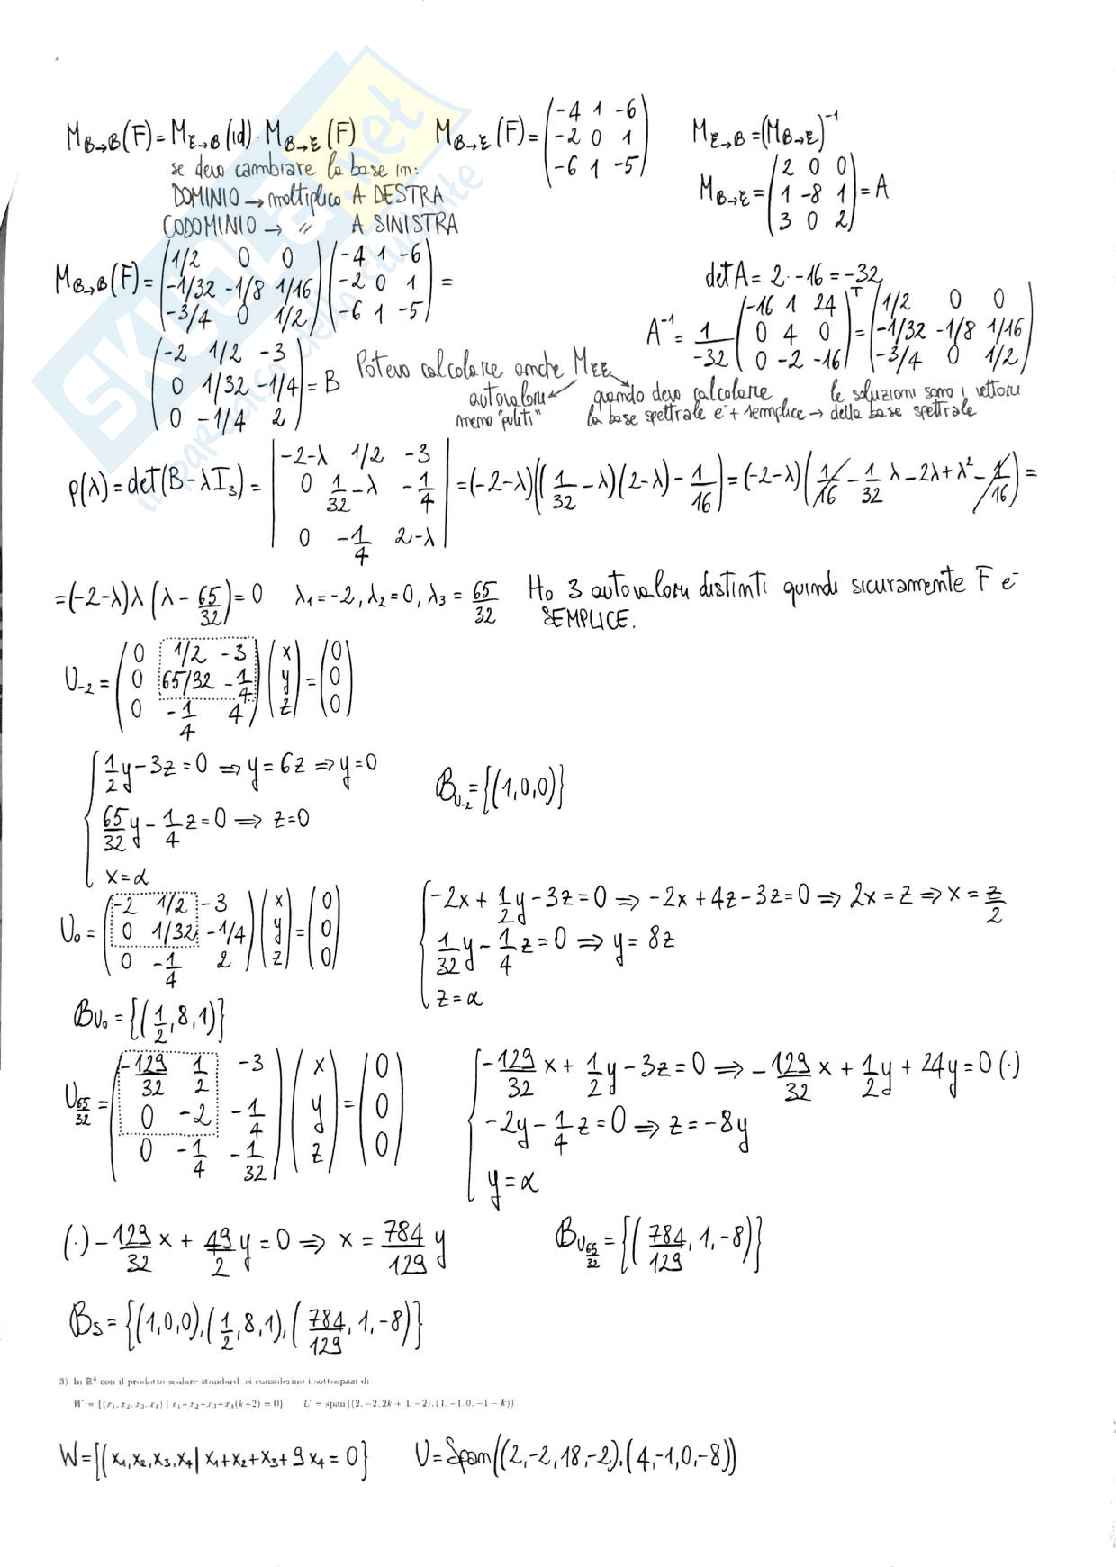 M_B→B(F) = M_E→B(id) · M_B→E(F)   M_B→E(F) = (-4 1 -6 / -2 0 1 / -6 1 -5)   M_E→B = (M_B→E)⁻¹
se devo cambiare la base in:
DOMINIO → moltiplico A DESTRA   M_B→E = (2 0 0 / 1 -8 1 / 3 0 2) = A
CODOMINIO → " A SINISTRA
M_B→B(F) = (1/2 0 0 / -1/32 -1/8 1/16 / -3/4 0 1/2)(-4 1 -6 / -2 0 1 / -6 1 -5) =
det A = 2 · -16 = -32
A⁻¹ = 1/-32 (-16 1 24 / 0 4 0 / 0 -2 -16)ᵀ = (1/2 0 0 / -1/32 -1/8 1/16 / -3/4 0 1/2)
(-2 1/2 -3 / 0 1/32 -1/4 / 0 -1/4 2) = B
Potevo calcolare anche M_EE
autovalori meno "puliti"
quando devo calcolare la base spettrale è + semplice → le soluzioni sono i vettori della base spettrale
p(λ) = det(B - λI₃) = |-2-λ 1/2 -3 / 0 1/32-λ -1/4 / 0 -1/4 2-λ| = (-2-λ)((1/32 - λ)(2-λ) - 1/16) = (-2-λ)(1/16 - 1/32 λ - 2λ + λ² - 1/16) =
= (-2-λ)λ(λ - 65/32) = 0   λ₁ = -2, λ₂ = 0, λ₃ = 65/32   Ho 3 autovalori distinti quindi sicuramente F è
SEMPLICE.
U₋₂ = (0 1/2 -3 / 0 65/32 -1/4 / 0 -1/4 4)(x / y / z) = (0 / 0 / 0)
{1/2 y - 3z = 0 ⇒ y = 6z ⇒ y = 0
65/32 y - 1/4 z = 0 ⇒ z = 0
x = α
B_U₋₂ = {(1,0,0)}
U₀ = (-2 1/2 -3 / 0 1/32 -1/4 / 0 -1/4 2)(x / y / z) = (0 / 0 / 0)
{-2x + 1/2 y - 3z = 0 ⇒ -2x + 4z - 3z = 0 ⇒ 2x = z ⇒ x = z/2
1/32 y - 1/4 z = 0 ⇒ y = 8z
z = α
B_U₀ = {(1/2, 8, 1)}
U_65/32 = (-129/32 1/2 -3 / 0 -2 -1/4 / 0 -1/4 -1/32)(x / y / z) = (0 / 0 / 0)
{-129/32 x + 1/2 y - 3z = 0 ⇒ -129/32 x + 1/2 y + 24y = 0 (·)
-2y - 1/4 z = 0 ⇒ z = -8y
y = α
(·) -129/32 x + 49/2 y = 0 ⇒ x = 784/129 y   B_U65/32 = {(784/129, 1, -8)}
B_S = {(1,0,0), (1/2, 8, 1), (784/129, 1, -8)}
3) In R⁴ con il prodotto scalare standard, si considerano i sottospazi di
W = {(x₁, x₂, x₃, x₄) | x₁+x₂+x₃+x₄(k+2) = 0}   U = span((2, -2, 2k + 4, -2), (4, -1, 0, -1 - k))
W = {(x₁, x₂, x₃, x₄ | x₁+x₂+x₃+9x₄ = 0}   U = Span((2,-2,18,-2), (4,-1,0,-8))